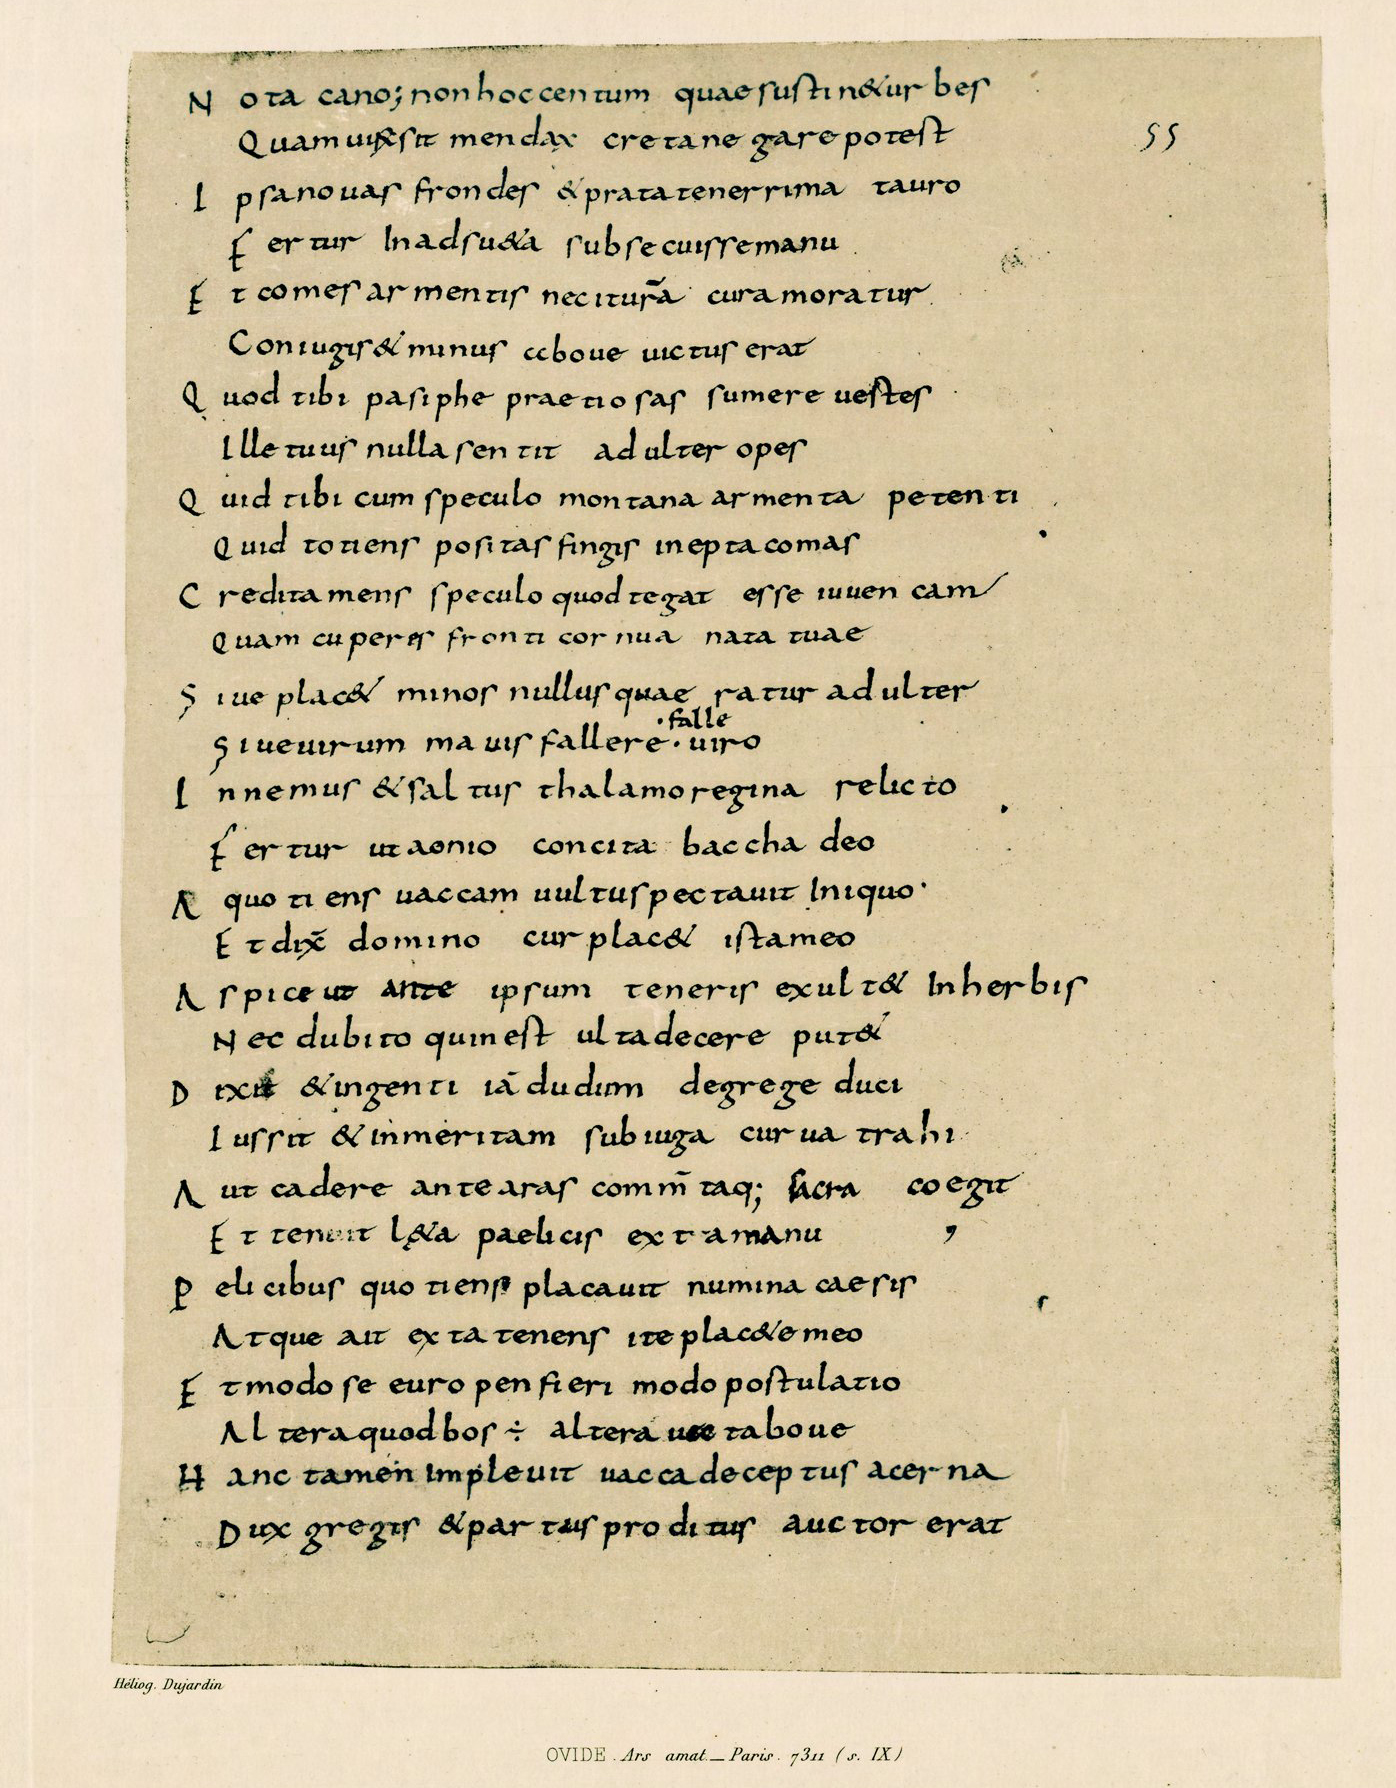 Nota cano; non hoc centum quae sustin&urbes
55
Quam uix sit mendax cretane gare potest
Ipsa nouas frondes & prata tenerrima tauro
Fertur Inadsu&a subsecuisse manu
Et comes armentis nec iturā cura moratur
Coniugis & minus ccboue uictus erat
Quod tibi pasiphe praetiosas sumere uestes
Ille tuus nulla sentit adulter opes
Quid tibi cum speculo montana armenta petenti
Quid totiens positas fingis inepta comas
Credita mens speculo quod tegat esse iuuencam
Quam cuperes fronti cornua nata tuae
Siue plac& minos nullus quaeratur adulter
·falle
Siue uirum mauis fallere· uiro
In nemus & saltus thalamo regina relicto
Fertur ut aonio concita baccha deo
A quotiens uaccam uultu spectauit Iniquo·
Et dix̄ domino cur plac& ista meo
Aspice ut ante ipsum teneris exult& Inherbis
Nec dubito quin est ulta decere put&
Dixit & ingenti iā dudum degrege duci
Iussit & inmeritam sub iuga curua trahi
Aut cadere ante aras comm̄taq; sacra coegit
Et tenuit l&a paelicis exta manu
Pelicibus quotiens placauit numina caesis
Atque ait exta tenens ite plac&e meo
Et modo se europen fieri modo postulat io
Altera quod bos ÷ altera uecta boue
Hanc tamen Impleuit uacca deceptus acerna
Dux gregis & partus proditus auctor erat
Héliog. Dujardin
OVIDE. Ars amat. — Paris. 7311 (s. IX)